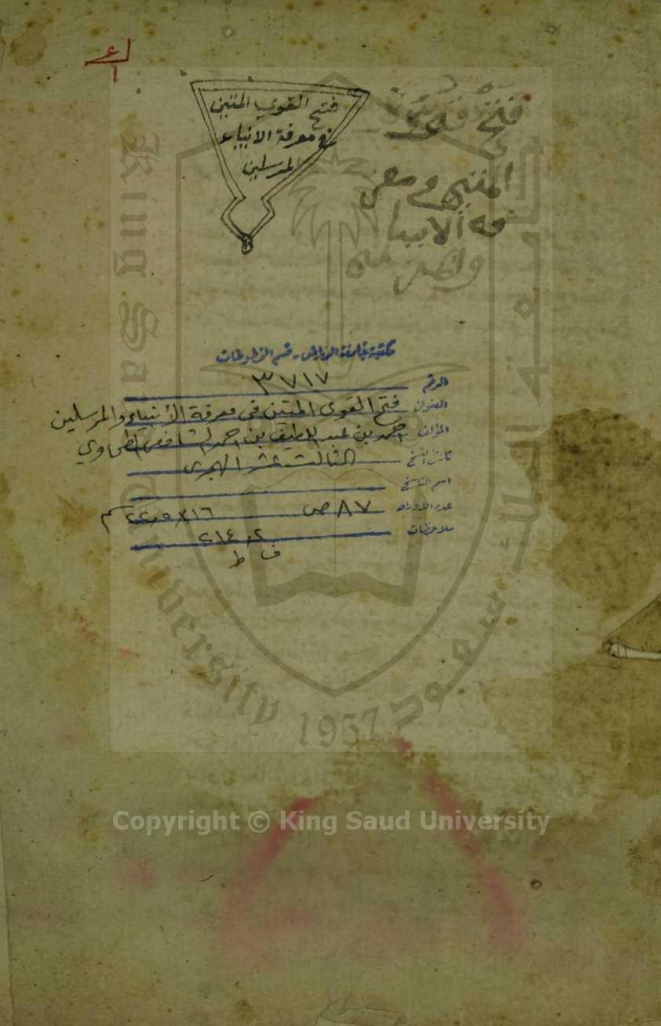 فتح القوي المتين
في معرفة الانبياء
المرسلين
فتح
المتين في معر
فة الانبيا
مكتبة جامعة الرياض - قسم المخطوطات
الرقم ٣٧١٧
العنوان فتح القوي المتين في معرفة الأنبياء والمرسلين
المؤلف احمد بن عبد اللطيف بن احمد الشافعي
تاريخ النسخ الثالث عشر الهجري
اسم الناسخ
عدد الأوراق ٨٧ ص
ملاحظات ٢١٤/٢
ف ط
King Saud University
1957
جامعة الملك سعود
Copyright © King Saud University